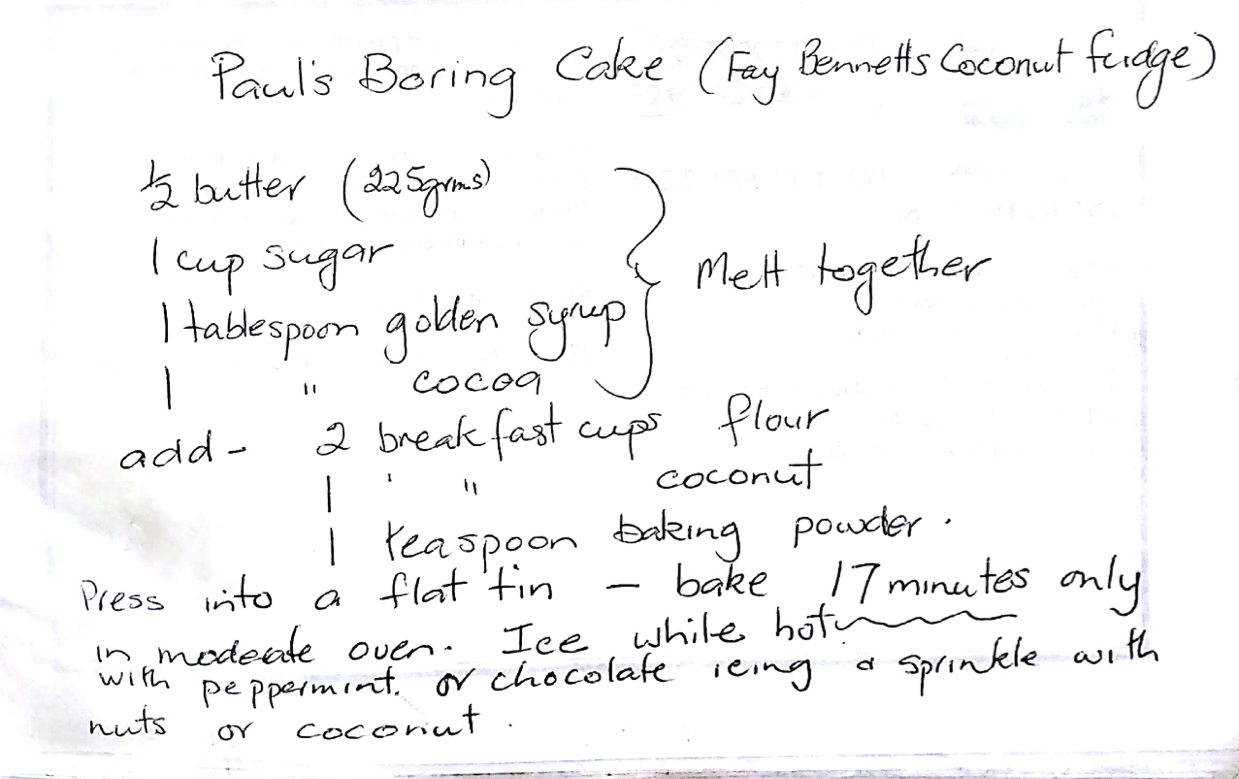 Paul's Boring Cake (Fay Bennetts Coconut fudge)
½ butter (225grms)
1 cup sugar
1 tablespoon golden syrup
1 " cocoa
Melt together
add - 2 breakfast cups flour
1 ' " coconut
1 teaspoon baking powder.
Press into a flat tin – bake 17 minutes only
in modeate oven. Ice while hot
with peppermint. or chocolate icing & sprinkle with
nuts or coconut.